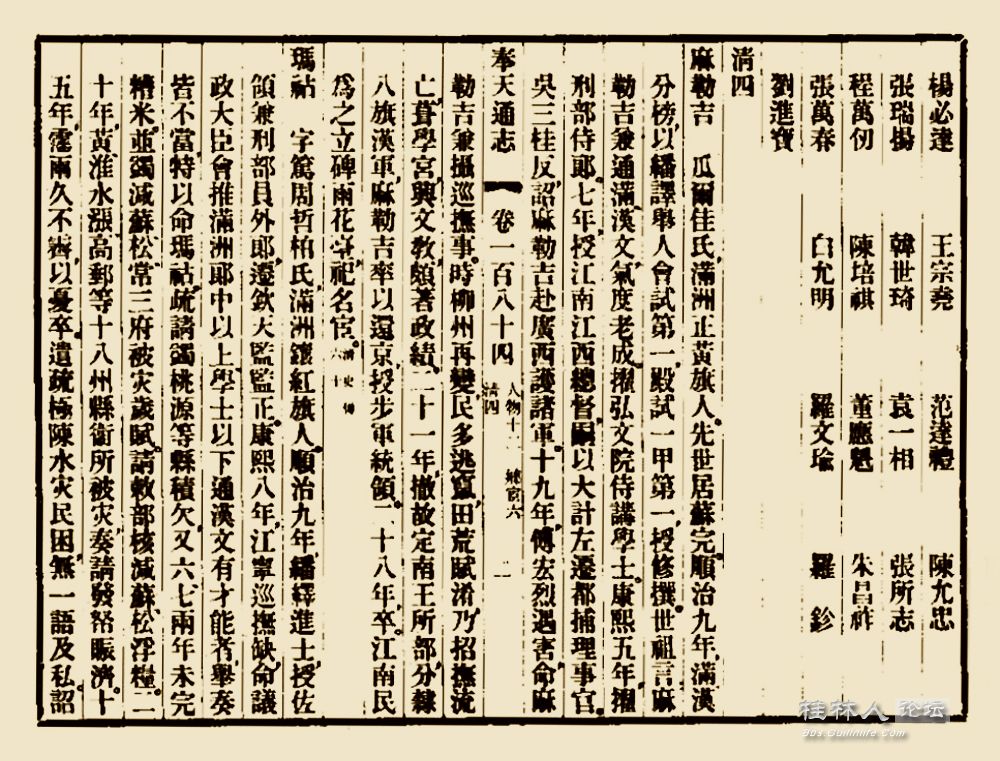 楊必達 王宗堯 范達禮 陳允忠
張瑞揚 韓世琦 袁一相 張所志
程萬仞 陳培祺 董應魁 朱昌祚
張萬春 白允明 羅文瑜 羅鉁
劉進寶
清四
麻勒吉 瓜爾佳氏滿洲正黃旗人先世居蘇完順治九年滿漢
分榜以繙譯舉人會試第一殿試一甲第一授修撰世祖言麻
勒吉兼通滿漢文氣度老成擢弘文院侍講學士康熙五年擢
刑部侍郎七年授江南江西總督嗣以大計左遷都捕理事官
吳三桂反詔麻勒吉赴廣西護諸軍十九年傅宏烈遇害命麻
奉天通志 卷一百八十四 人物十二 清四 鄉宦六 一
勒吉兼攝巡撫事時柳州再變民多逃竄田荒賦淆乃招撫流
亡葺學宮興文教頗著政績二十一年撤故定南王所部分隸
八旗漢軍麻勒吉率以還京授步軍統領二十八年卒江南民
為之立碑雨花臺祀名宦 清史傳六十
瑪祜 字篤周哲柏氏滿洲鑲紅旗人順治九年繙繹進士授佐
領兼刑部員外郎遷欽天監監正康熙八年江寧巡撫缺命議
政大臣會推滿洲郎中以上學士以下通漢文有才能者舉奏
皆不當特以命瑪祜疏請蠲桃源等縣積欠又六七兩年未完
糟米並蠲減蘇松常三府被灾歲賦請敕部核減蘇松浮糧二
十年黃淮水漲高郵等十八州縣衛所被灾奏請發帑賑濟十
五年霪雨久不霽以憂卒遺疏極陳水灾民困無一語及私詔
桂林人论坛
bbs.Guilinlife.Com